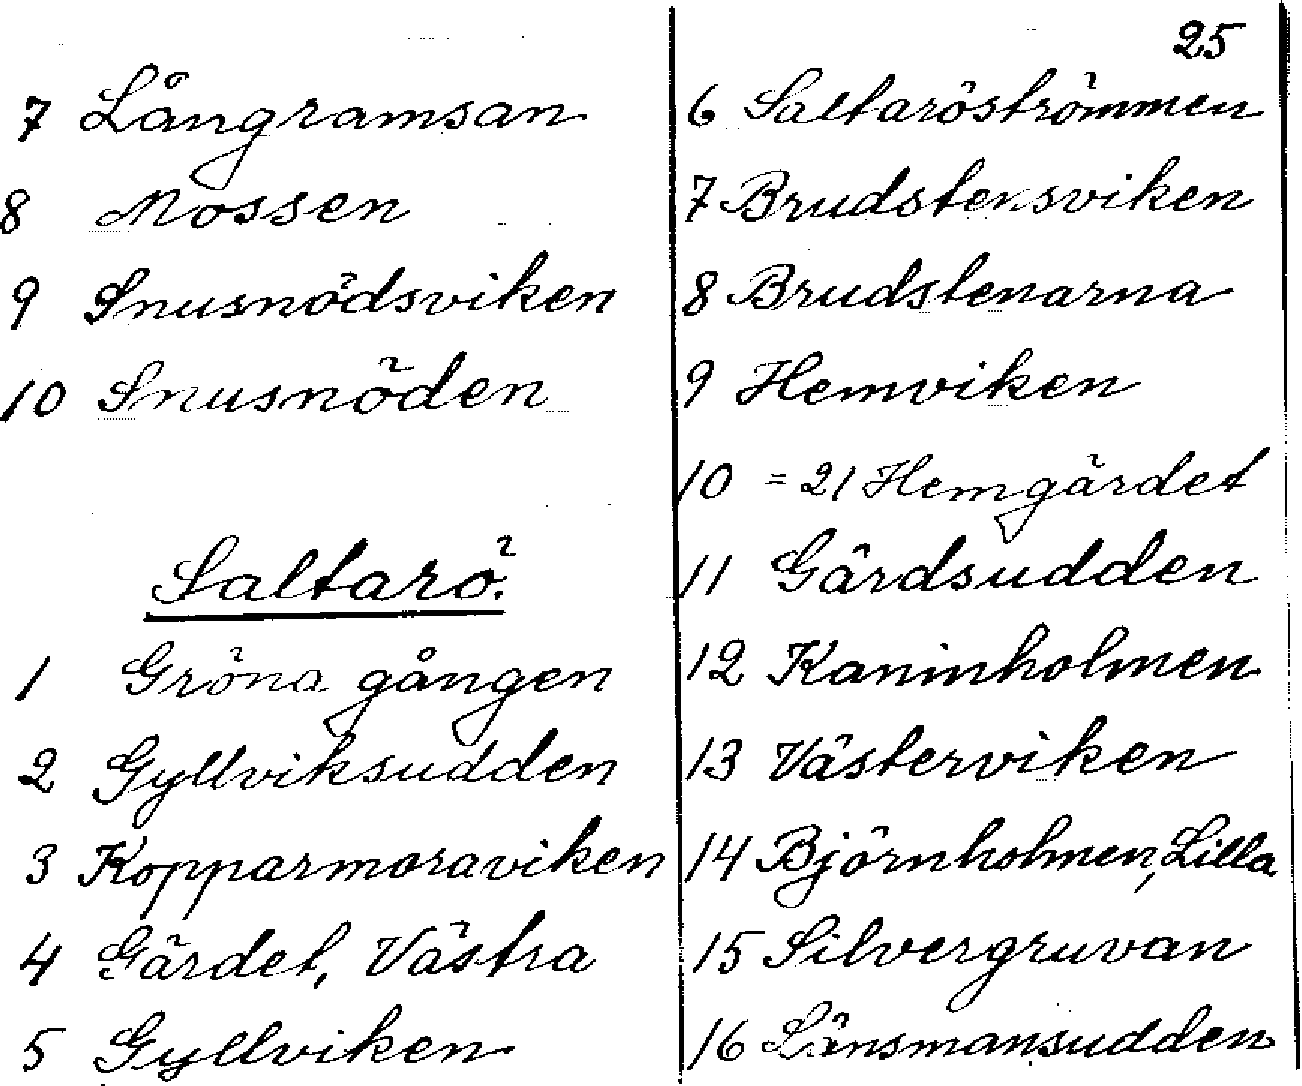 7 Långramsan
8 Mossen
9 Snusnödsviken
10 Snusnöden
Saltarö.
1 Gröna gången
2 Gyllviksudden
3 Kopparmoraviken
4 Gärdet, Västra
5 Gyllviken
25
6 Saltaröströmmen
7 Brudstensviken
8 Brudstenarna
9 Hemviken
10 = 21 Hemgärdet
11 Gärdsudden
12 Kaninholmen
13 Västerviken
14 Björnholmen, Lilla
15 Silvergruvan
16 Länsmansudden